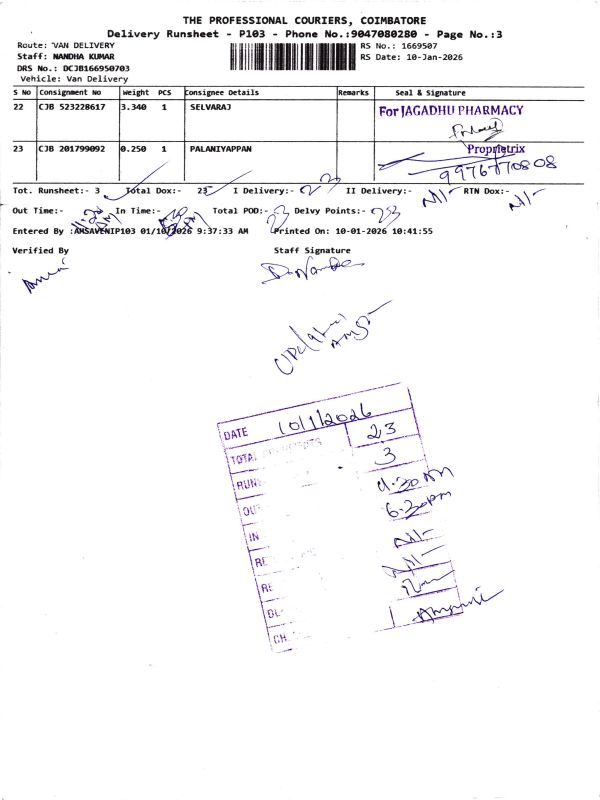 THE PROFESSIONAL COURIERS, COIMBATORE
Delivery Runsheet - P103 - Phone No.:9047080280 - Page No.:3
Route: VAN DELIVERY
RS No.: 1669507
Staff: NANDHA KUMAR
RS Date: 10-Jan-2026
DRS No.: DCJB166950703
Vehicle: Van Delivery
S No Consignment No Weight PCS Consignee Details Remarks Seal & Signature
22 CJB 523228617 3.340 1 SELVARAJ
For JAGADHU PHARMACY
23 CJB 201799092 0.250 1 PALANIYAPPAN
Proprietrix
9976770808
Tot. Runsheet:- 3 Total Dox:- 23 I Delivery:- 23 II Delivery:- Nil- RTN Dox:- Nil-
Out Time:- 11.30 AM In Time:- 6.30 PM Total POD:- 23 Delvy Points:- 23
Entered By :AMSAVENIP103 01/10/2026 9:37:33 AM Printed On: 10-01-2026 10:41:55
Verified By Staff Signature
DATE 10/1/2026
TOTAL 23
RUN 3
OU 11.30 AM
IN 6.30 PM
RE Nil-
RE Nil-
BL
CH